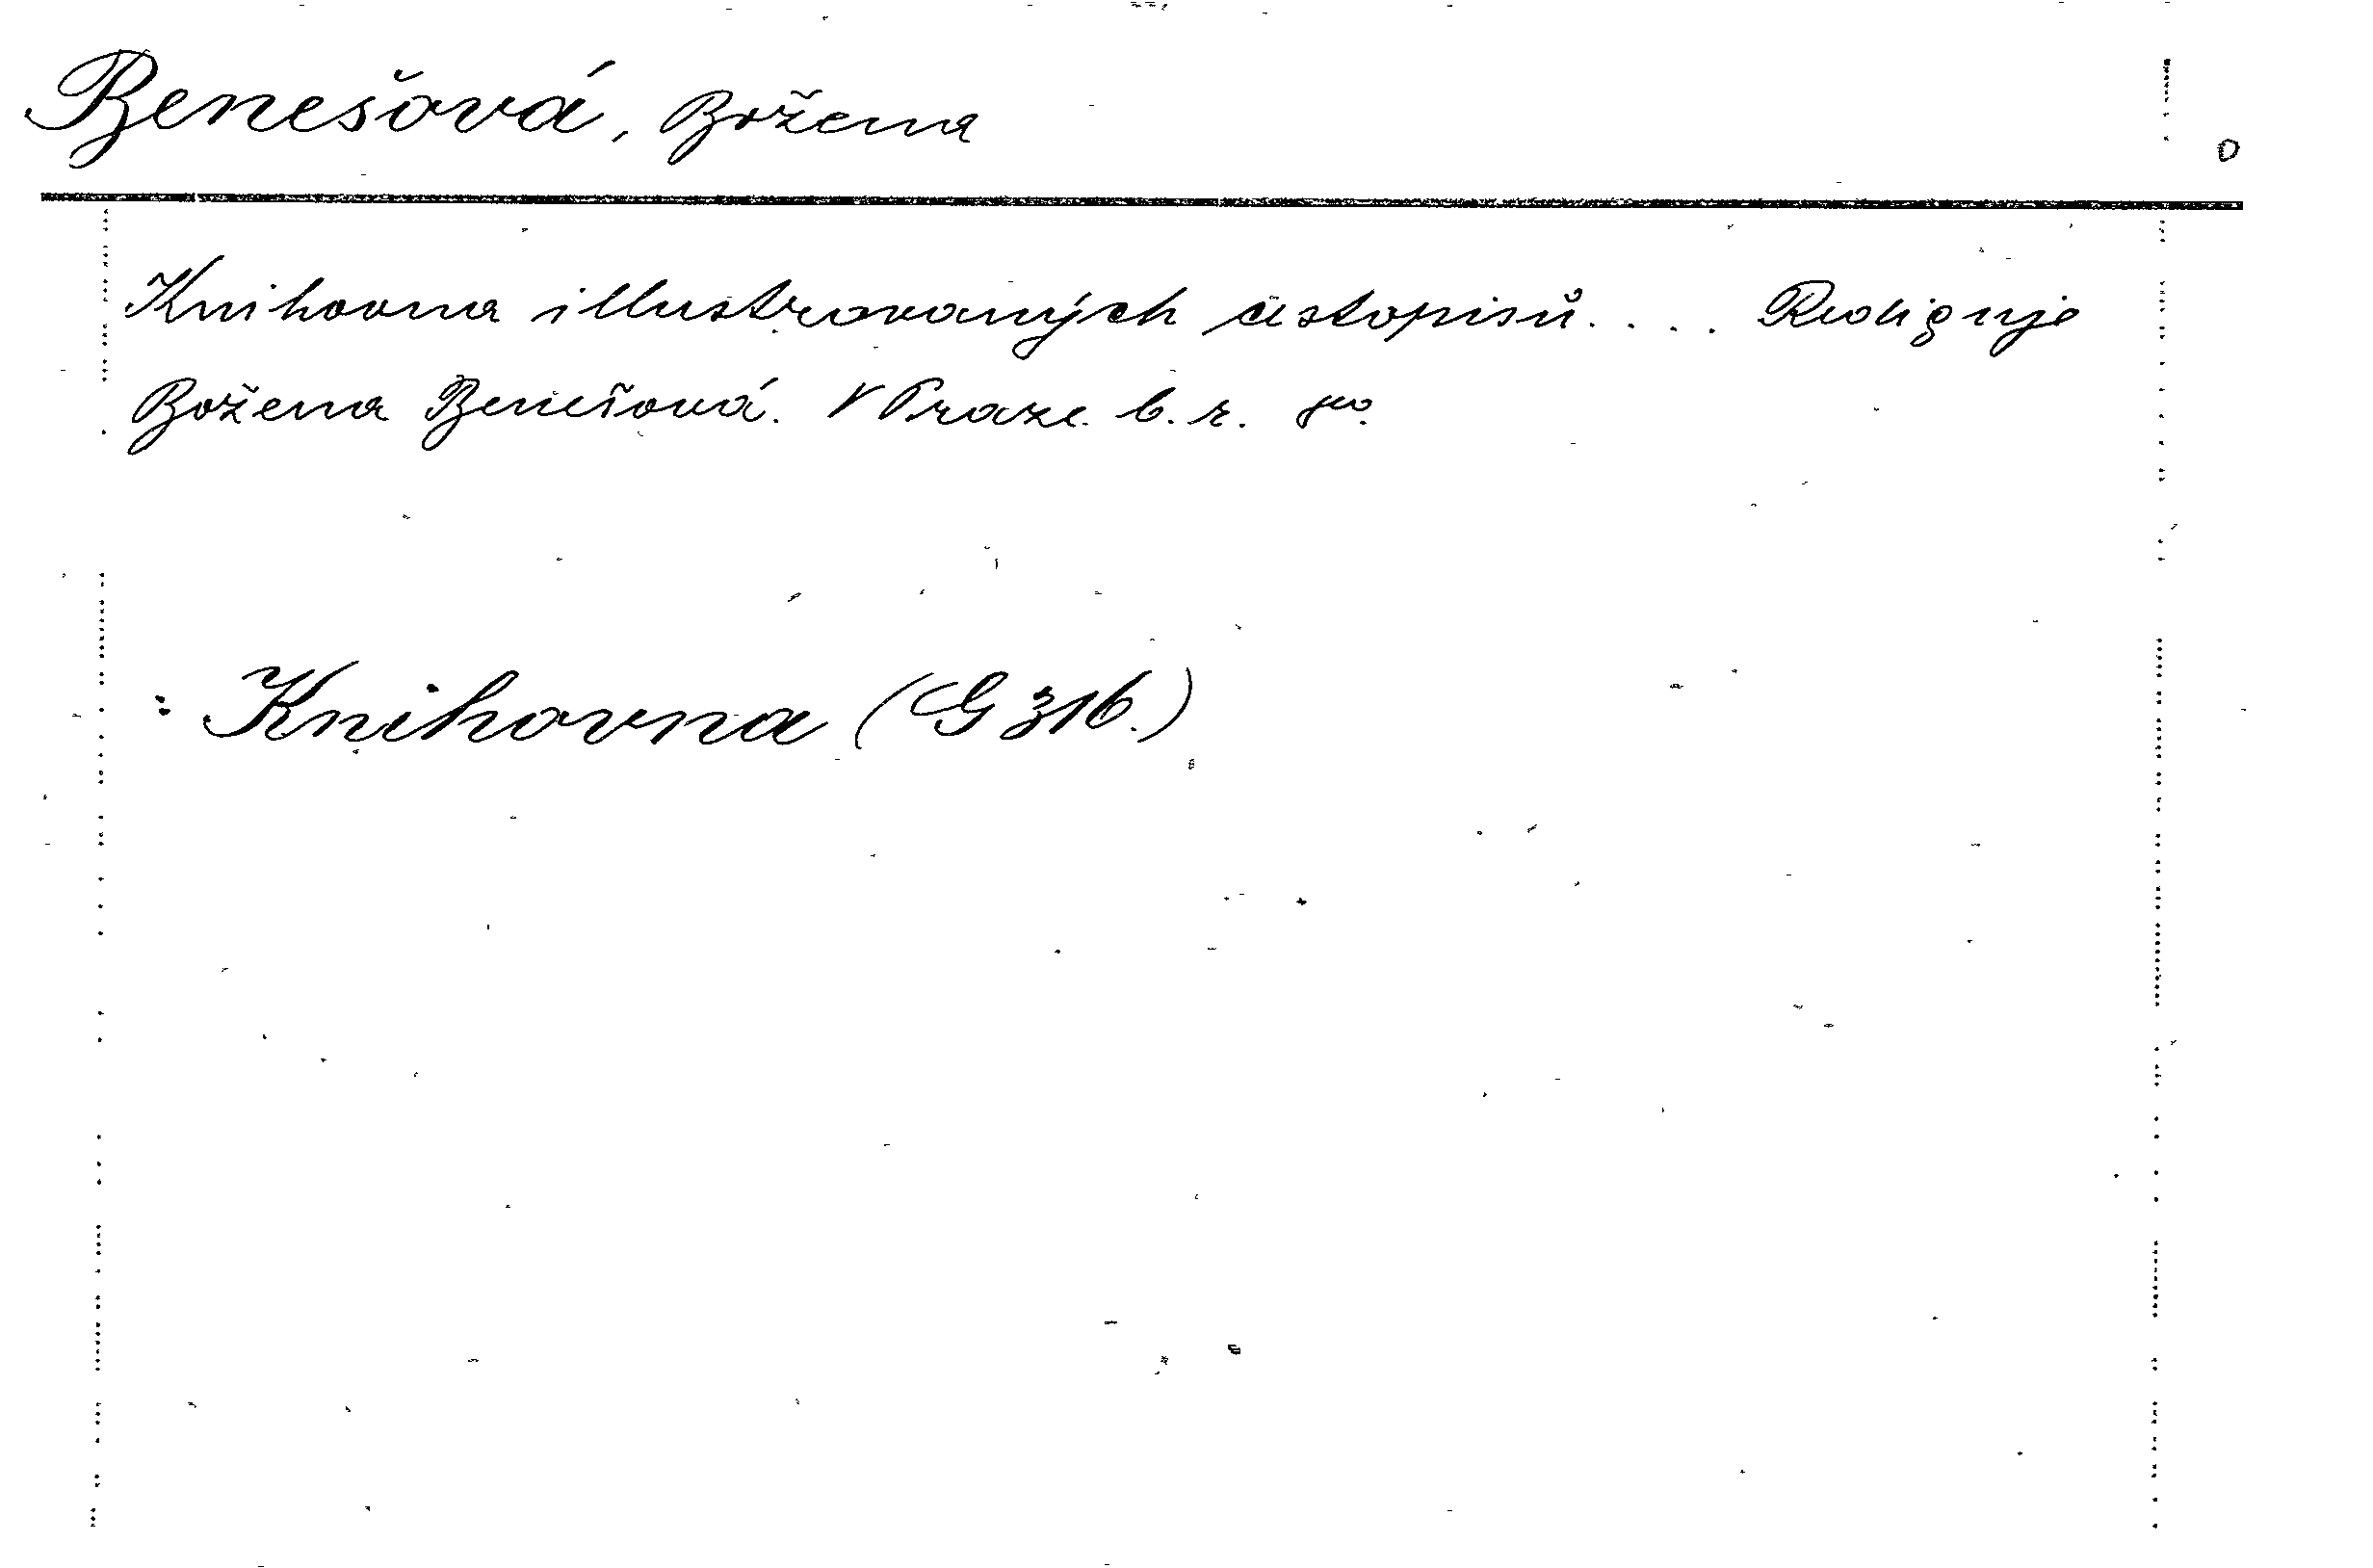 Benešová, Božena
Knihovna illustrovaných cestopisů.... Rediguje
Božena Benešová. V Praze. b. r. 8vo.
: Knihovna (G 316.)